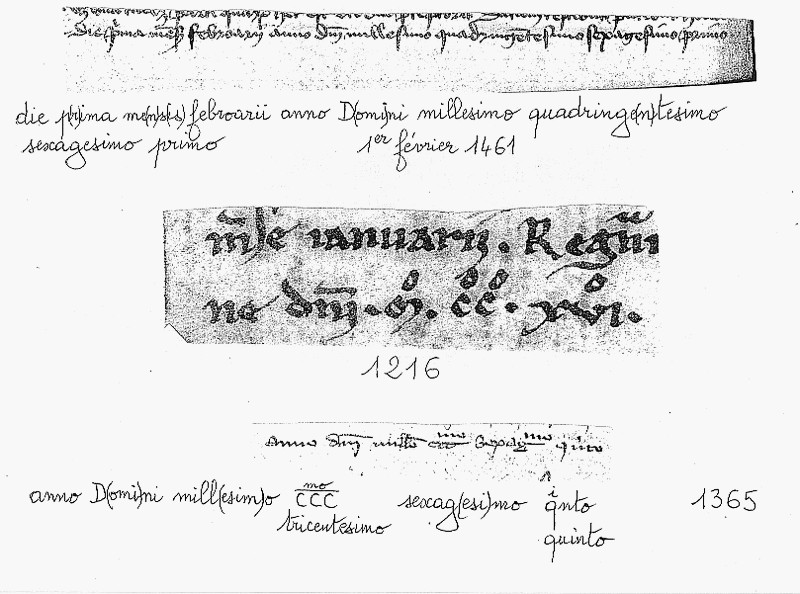 die prima mes februarii anno dni millesimo quadringetesimo sexagesimo primo
die p(ri)ma me(n)s(is) febroarii anno D(omi)ni millesimo quadring(en)tesimo
sexagesimo primo 1er février 1461
mse ianuarii. Regnn
no dni. M. CC. xvi.
1216
anno dni millo ccc mo sexag mo qnto
anno D(omi)ni mill(esim)o CCC mo sexag(esi)mo qinto 1365
tricentesimo quinto